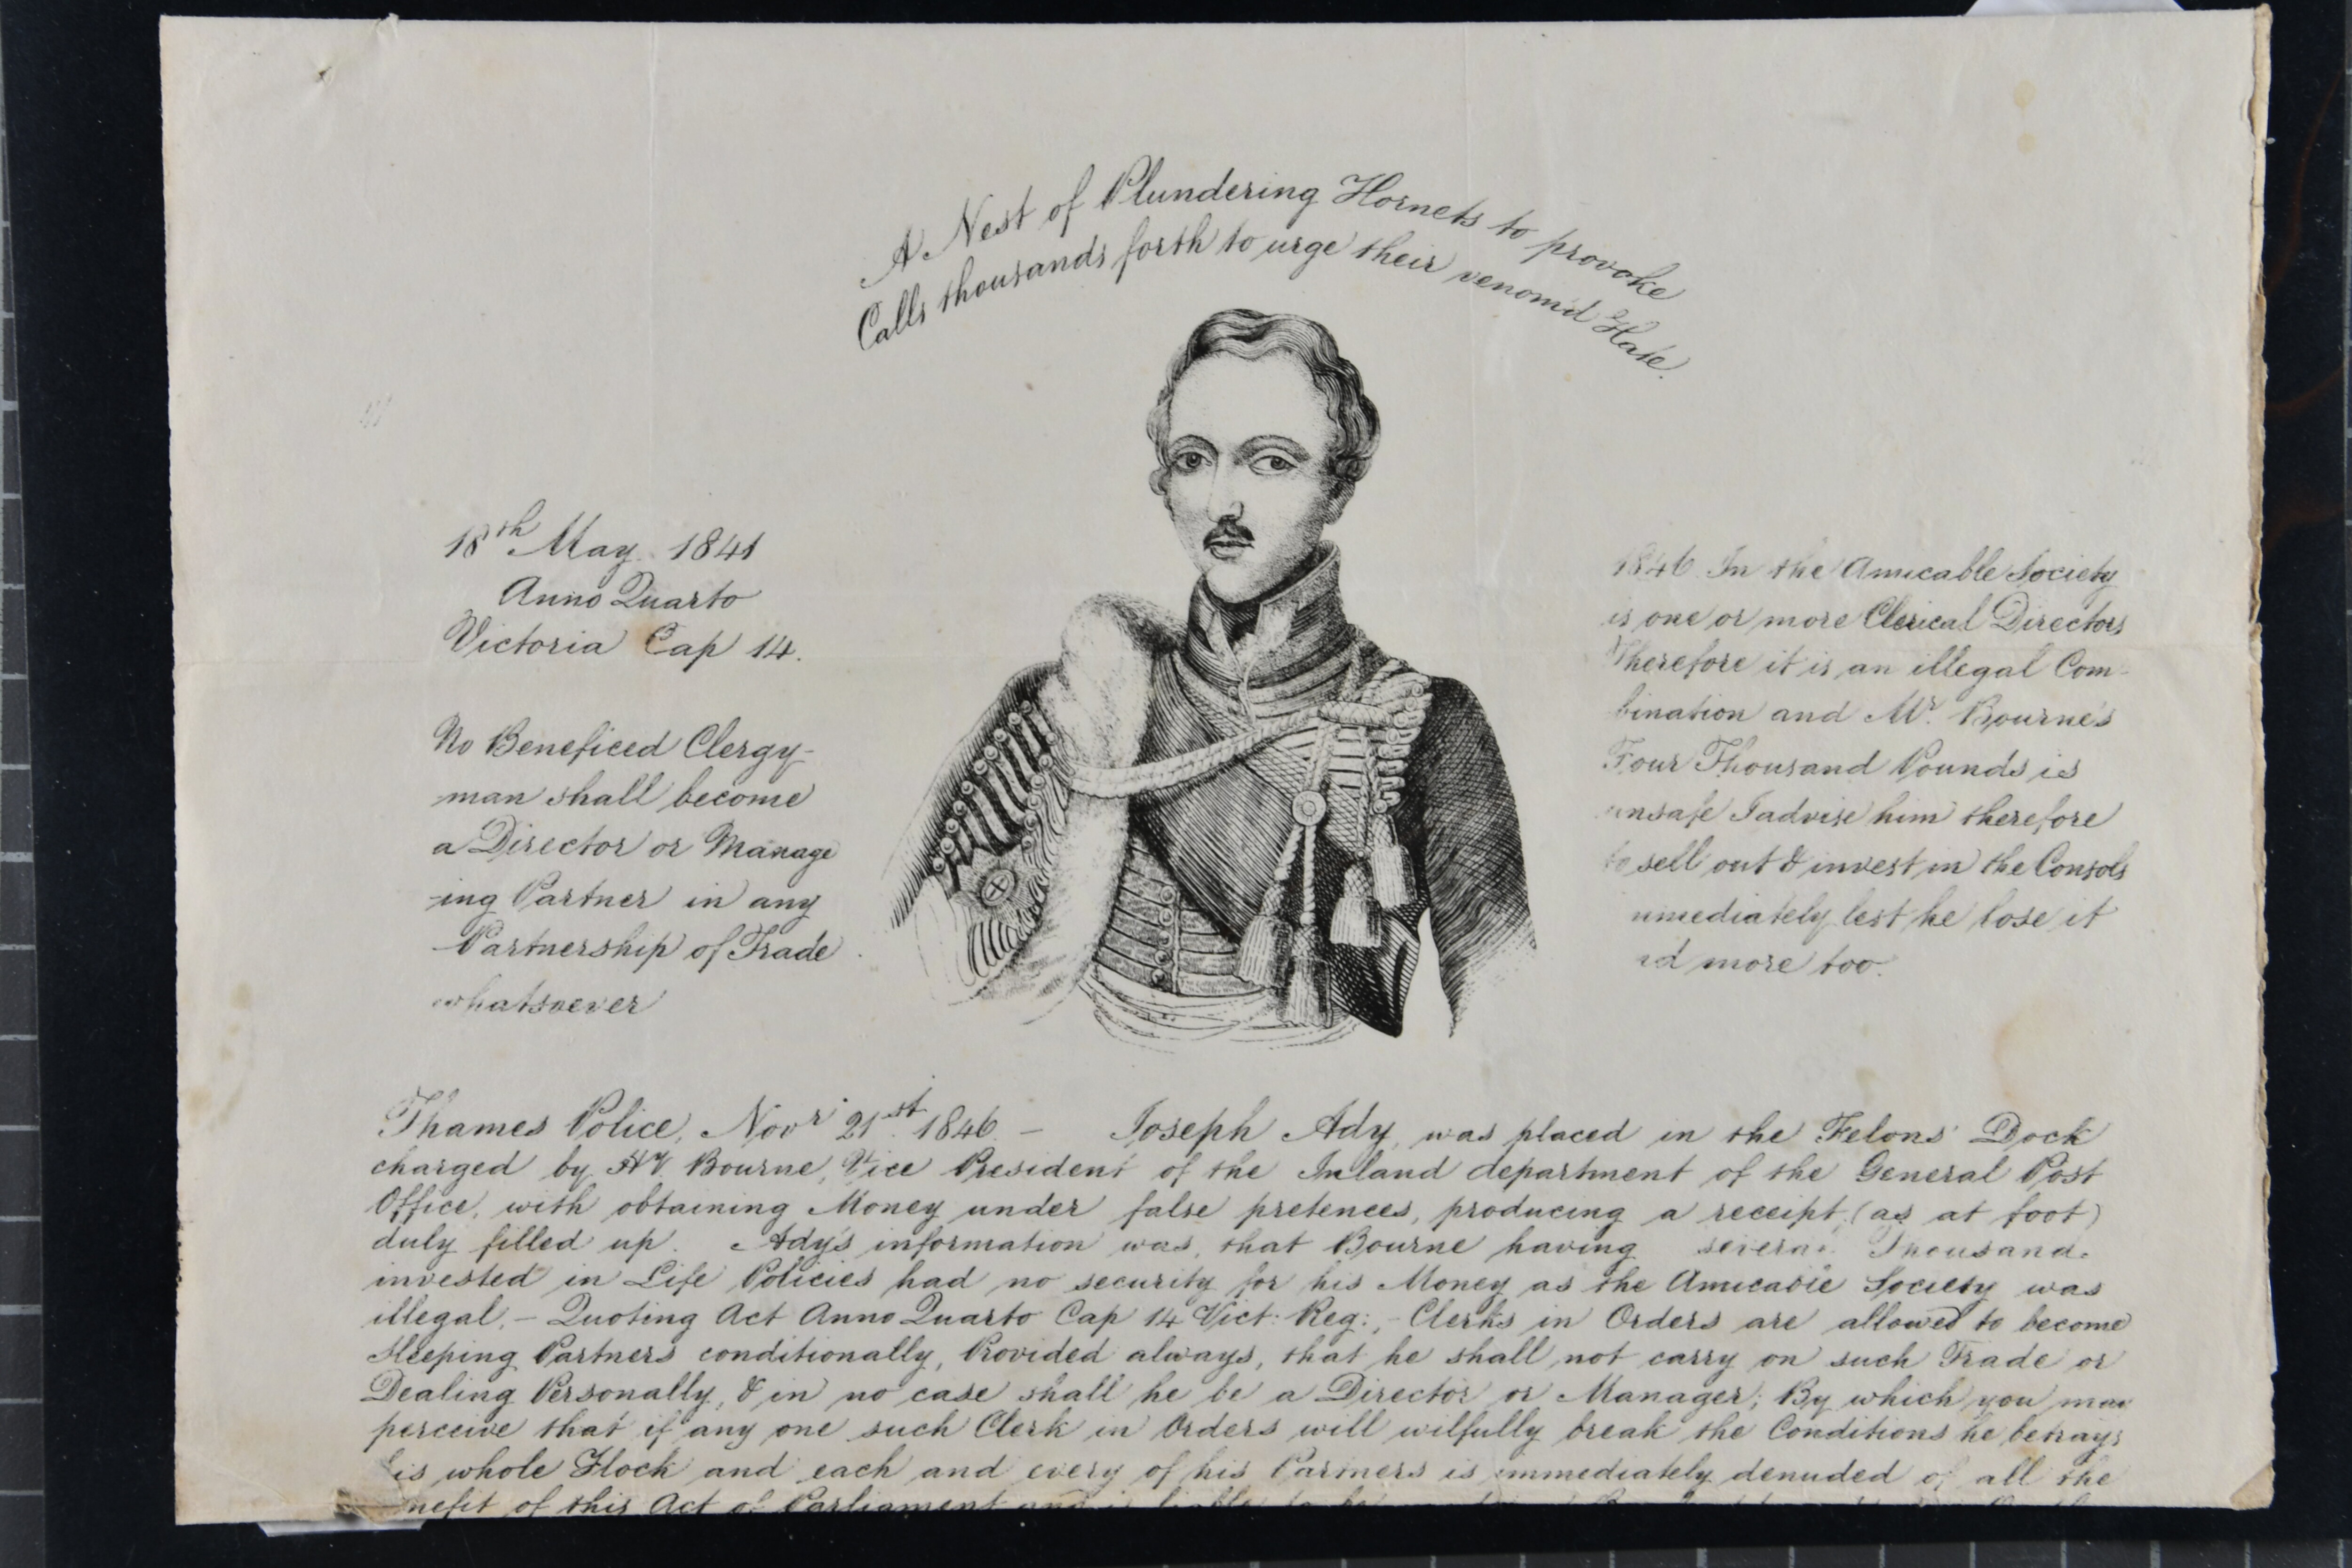 A Nest of Plundering Hornets to provoke
Calls thousands forth to urge their venom'd Hate.
18th May 1841
Anno Quarto
Victoria Cap 14.
No Beneficed Clergy-
man shall become
a Director or Manage
-ing Partner in any
Partnership of Trade
whatsoever
1846 In the Amicable Society
is one or more Clerical Directors
Therefore it is an illegal Com-
bination and Mr. Bourne's
Four Thousand Pounds is
unsafe I advise him therefore
to sell out & invest in the Consols
immediately lest he lose it
nd more too.
Thames Police, Novr 21st 1846. – Joseph Ady, was placed in the Felons' Dock
charged by Bourne, Vice President of the Inland department of the General Post
Office, with obtaining Money under false pretences, producing a receipt, (as at foot)
duly filled up. Ady's information was, that Bourne having several Thousand
invested in Life Policies had no security for his Money as the Amicable Society was
illegal, – Quoting Act Anno Quarto Cap 14 Vict: Reg:, – Clerks in Orders are allowed to become
Sleeping Partners conditionally, Provided always, that he shall not carry on such Trade or
Dealing Personally, & in no case shall he be a Director or Manager; By which you may
perceive that if any one such Clerk in Orders will wilfully break the Conditions he betrays
his whole Flock and each and every of his Partners is immediately denuded of all the
nefit of this Act of Parliament and is liable to be